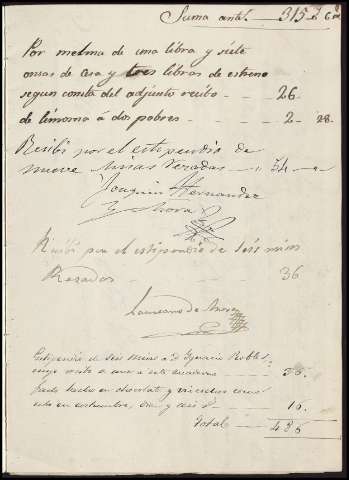 Suma antr. — 315 r. 6 m
Por melma de una libra y siete
onsas de Cera y tres libras de estreno
segun consta del adjunto recibo — 26
de limosna á dos pobres — 2 - 28.
Recibí por el estipendio de
nueve misas rezadas — 54
Joaquin Hernandez
y Mora
Recibí por el estipendio de seis misas
Rezadas — 36
Laureano de Mora
Estipendio de seis misas á D. Ignacio Robles
cuyo recibo á este cuaderno — 36.
Gasto hecho en chocolate y viscochos como
es costumbre, diez y seis r. — 16.
Total — 486